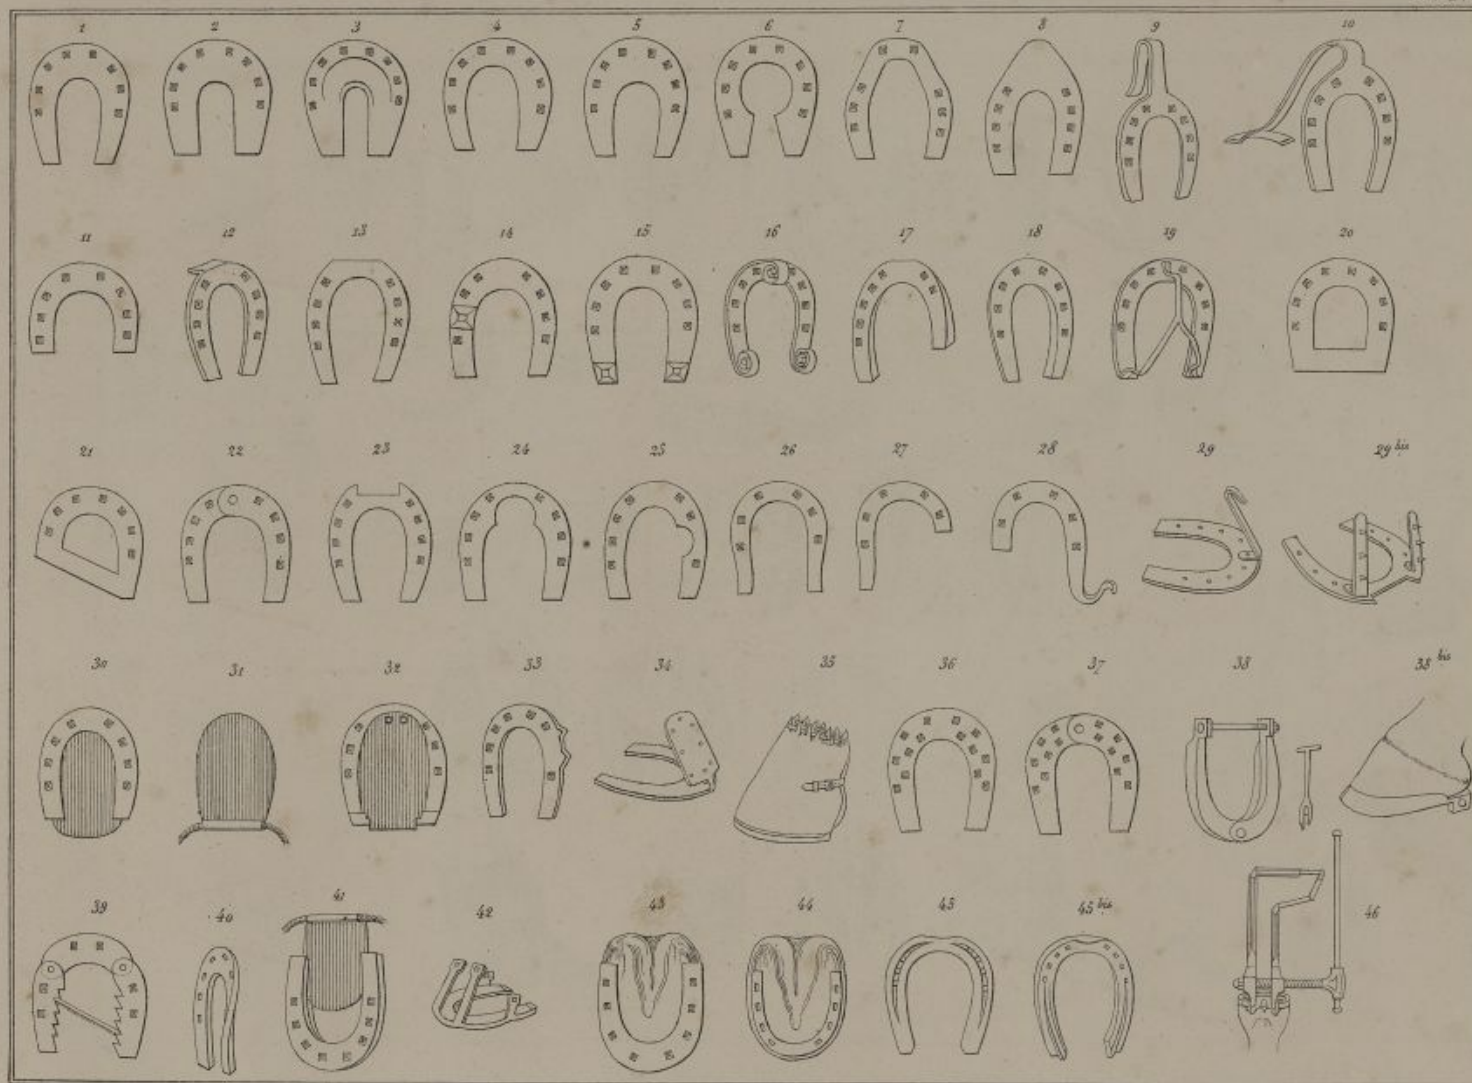 1 2 3 4 5 6 7 8 9 10
11 12 13 14 15 16 17 18 19 20
21 22 23 24 25 26 27 28 29 29 bis
30 31 32 33 34 35 36 37 38 38 bis
39 40 41 42 43 44 45 45 bis 46